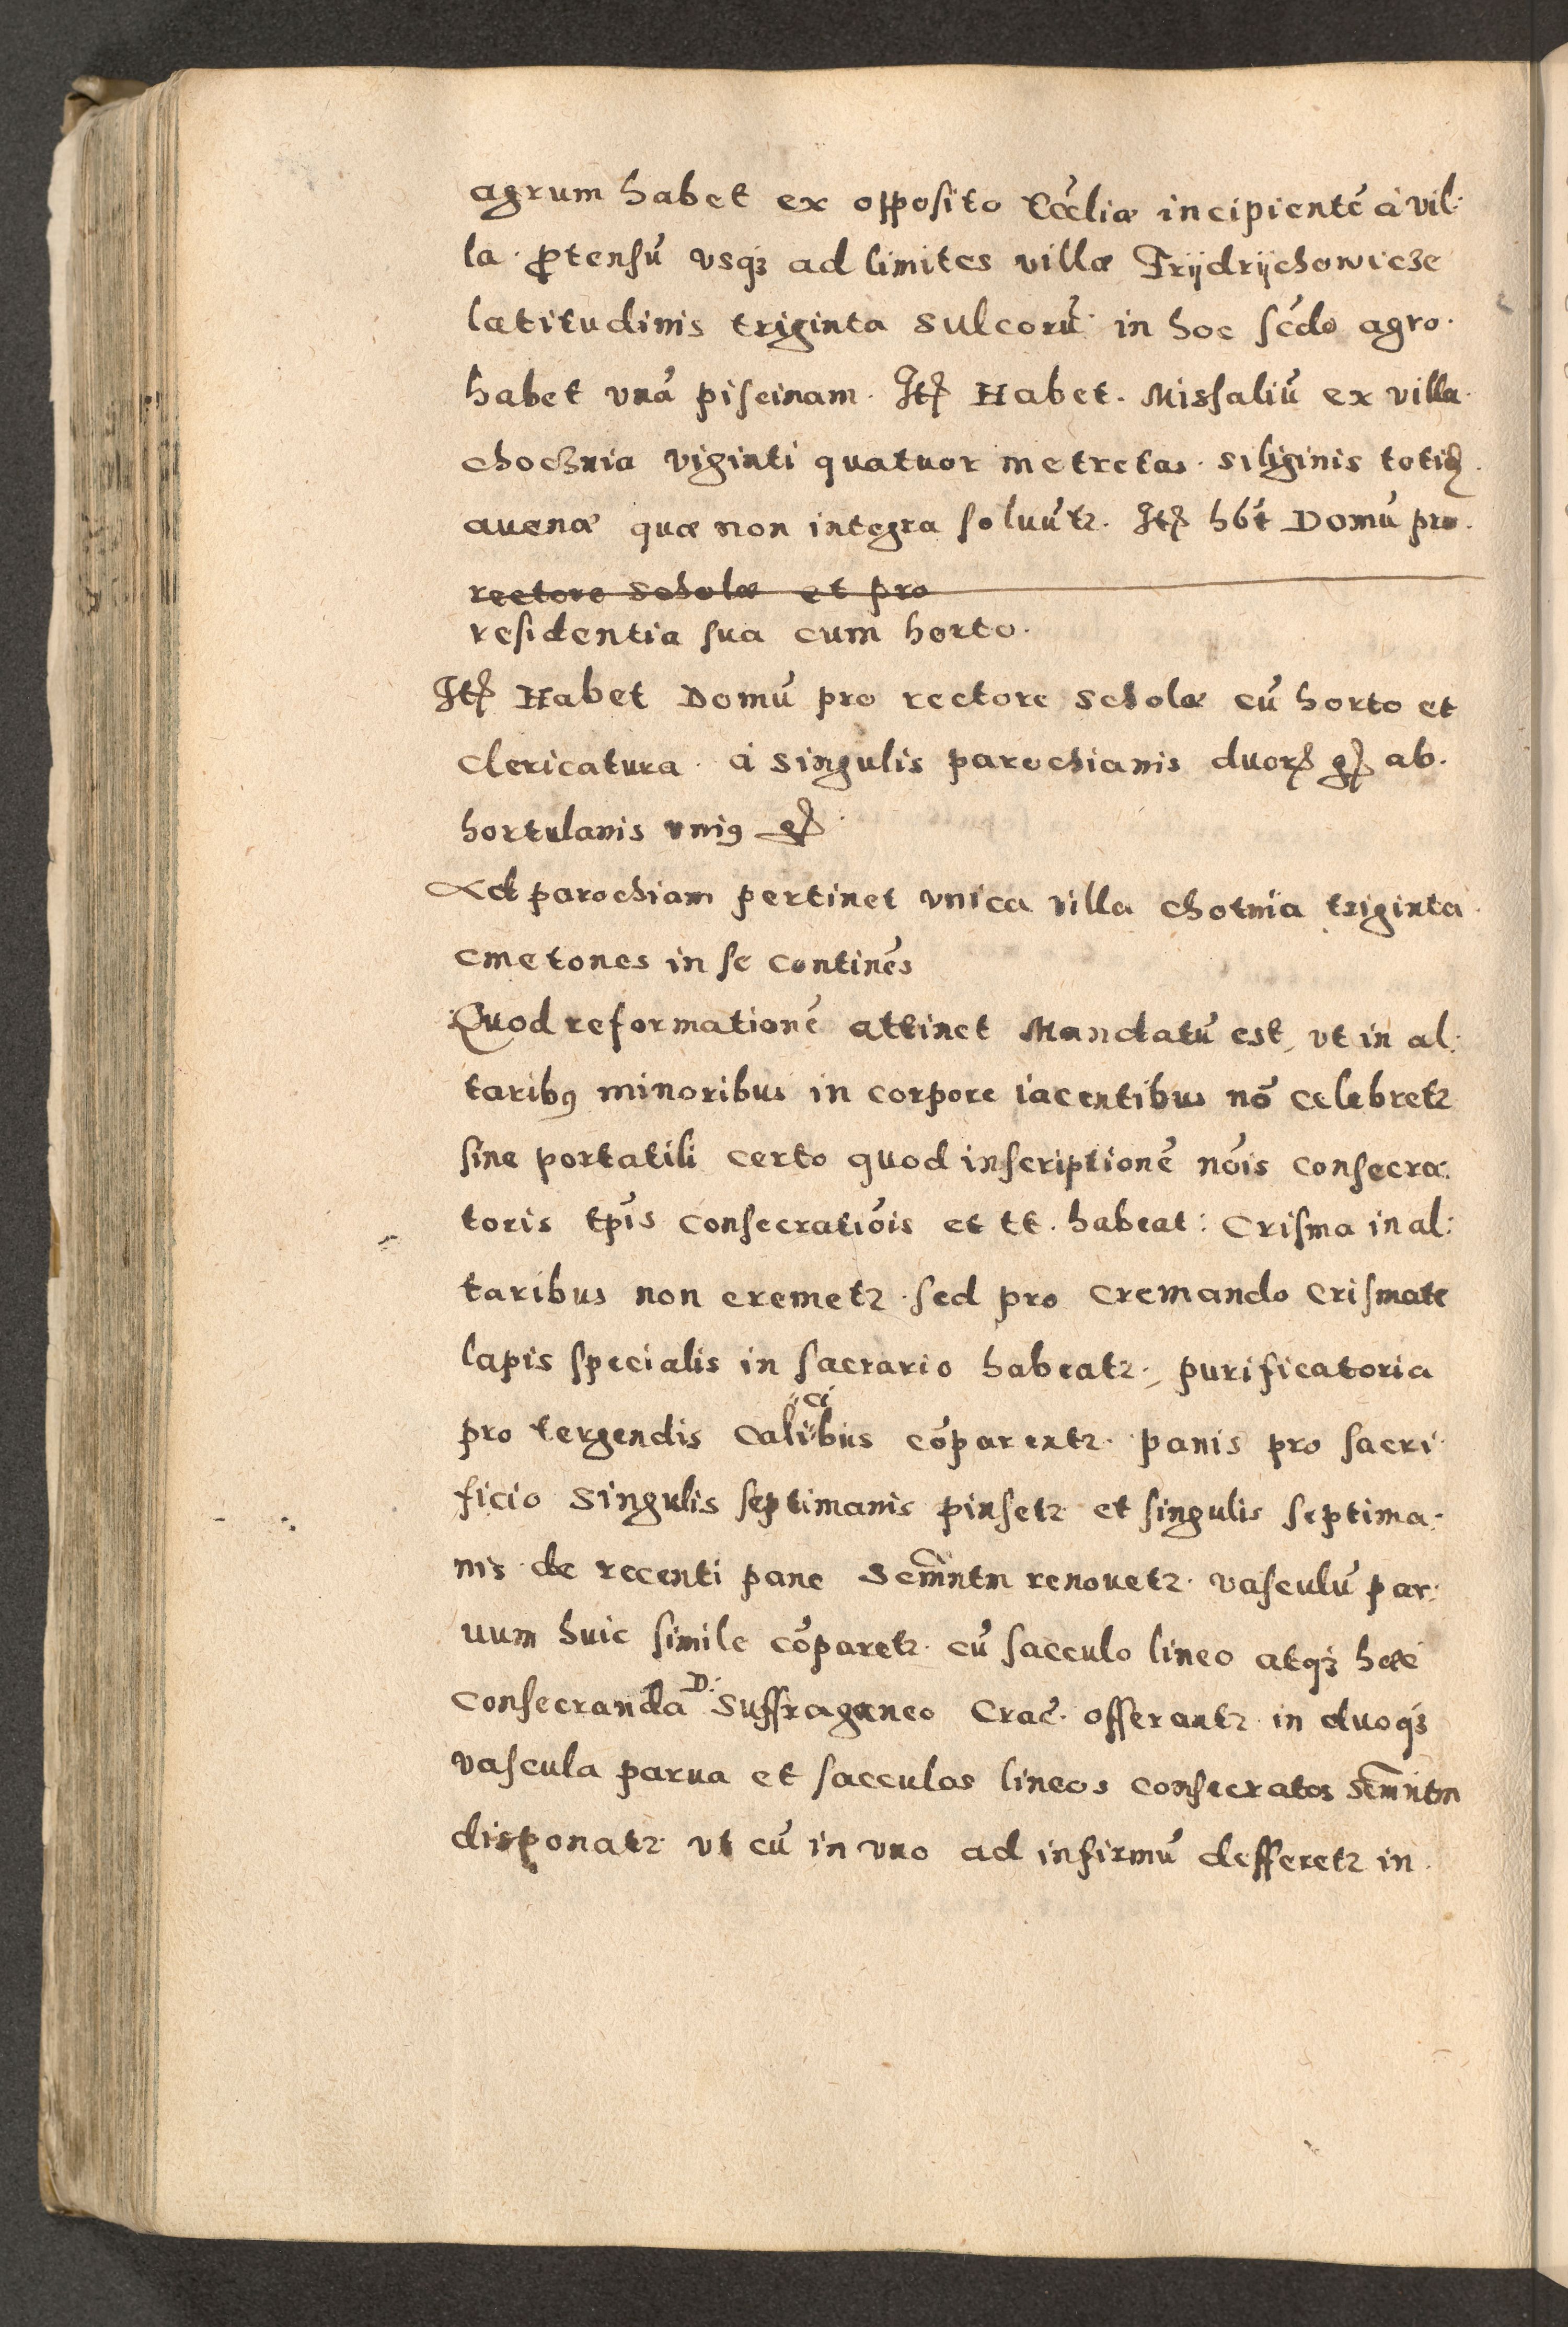 agrum habet ex opposito Eccłiæ incipientē à vil:
la ꝓtensū vsqꝫ ad limites villæ Frÿdrÿchowicze
latitudinis triginta sulcorū in hoc scd́o agro.
habet vnā piscinam. Itꝭ Habet. Missaliū ex villa
chocznia viginti quatuor metretas siliginis totiꝫ.
auenæ quæ non integra soluūtꝛ. Itꝭ hb́t Domū pro.
rectore scholæ et pro
residentia sua cum horto.
Itꝭ Habet Domū pro rectore scholæ cū horto et
clericatura à singulis parochianis duorꝭ gꝭ ab.
hortulanis vniꝰ gꝭ
Ad parochiam pertinet vnica villa chotnia triginta
cmetones in se continēs
Quod reformationē attinet Mandatū est, vt in al:
taribꝰ minoribus in corpore iacentibus nō celebretꝛ
sine portatili certo quod inscriptionē nōis consecra:
toris tp̄is consecratiōis et tt. habeat: Crisma in al:
taribus non cremetꝛ. sed pro cremando crismate
lapis specialis in sacrario habeatꝛ., purificatoria
pro tergendis calicibus cōparentꝛ. panis pro sacri
ficio singulis septimanis pinsetꝛ et singulis septima:
nis de recenti pane Scm̄ntm renouetꝛ. vasculū par:
uum huic simile cōparetꝛ. cū sacculo lineo atqꝫ hæc
consecranda D. Suffraganeo Crac̄. offerantꝛ in duoqꝫ
vascula parua et sacculos lineos consecratos Scm̄ntm
disponatꝛ vt cū in vno ad infirmū defferetꝛ in.